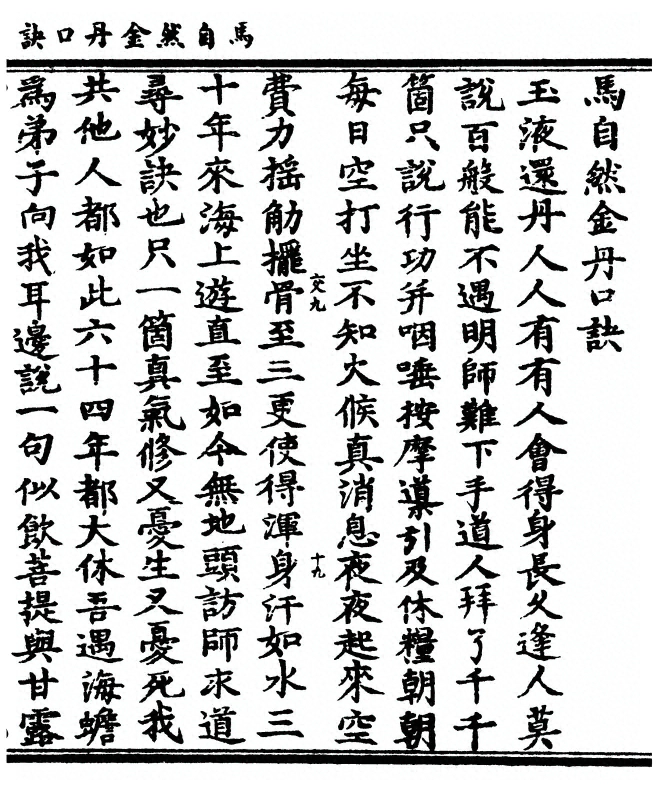 馬自然金丹口訣
馬自然金丹口訣
玉液還丹人人有有人會得身長久逢人莫
說百般能不遇明師難下手道人拜了千千
箇只說行功并咽唾按摩導引及休糧朝朝
每日空打坐不知火候真消息夜夜起來空
交九
十九
費力搖觔擺骨至三更使得渾身汗如水三
十年來海上遊直至如今無地頭訪師求道
尋妙訣也只一箇真氣修又憂生又憂死我
共他人都如此六十四年都大休吾遇海蟾
為弟子向我耳邊說一句似飲菩提與甘露